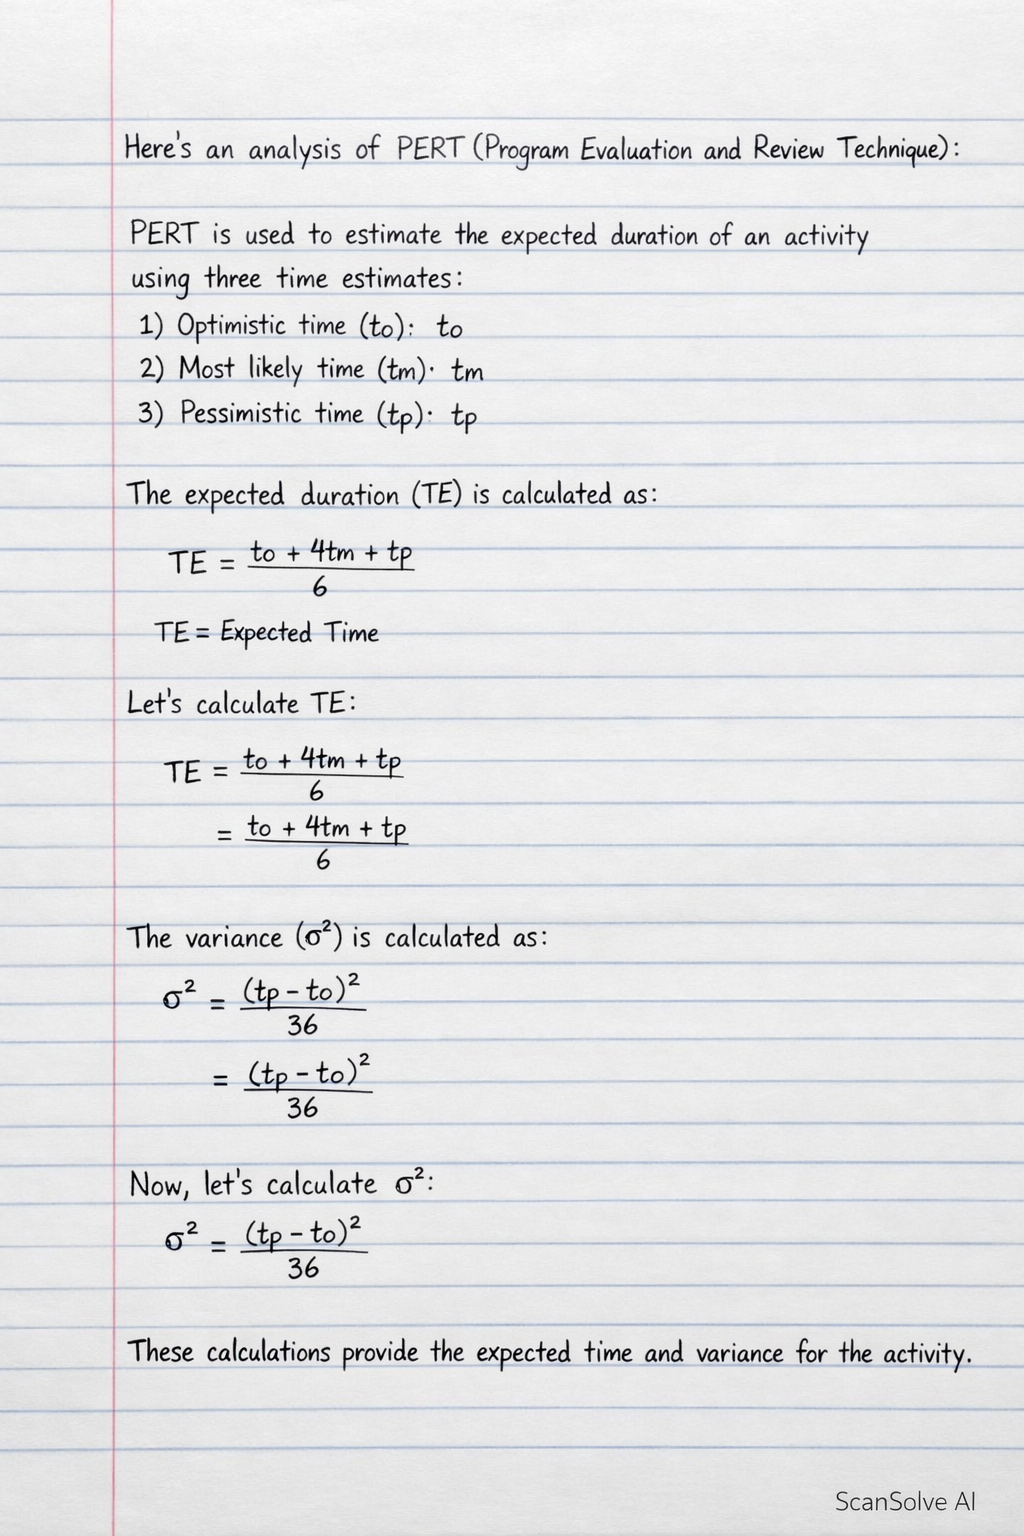 Here's an analysis of PERT (Program Evaluation and Review Technique):
PERT is used to estimate the expected duration of an activity
using three time estimates:
1) Optimistic time (to): to
2) Most likely time (tm)· tm
3) Pessimistic time (tp)· tp
The expected duration (TE) is calculated as:
TE = to + 4tm + tp / 6
TE = Expected Time
Let's calculate TE:
TE = to + 4tm + tp / 6
= to + 4tm + tp / 6
The variance (σ²) is calculated as:
σ² = (tp - to)² / 36
= (tp - to)² / 36
Now, let's calculate σ²:
σ² = (tp - to)² / 36
These calculations provide the expected time and variance for the activity.
ScanSolve AI